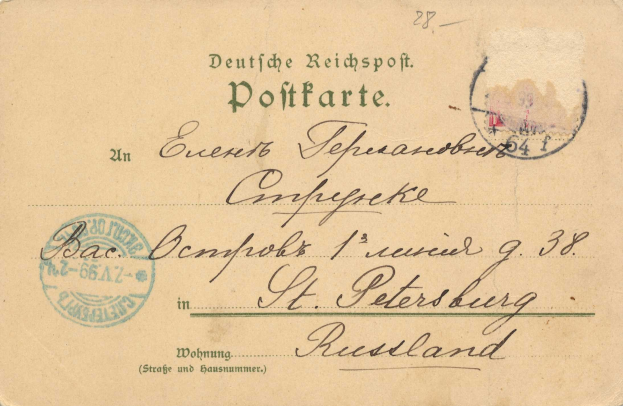 28.-
Deutsche Reichspost.
Postkarte.
64 f
An Еленѣ Германовнѣ
Струнске
Вас. Островъ 1ᵃ линія д. 38.
7.V.99-2
С.ПЕТЕРБУРГЪ
in St. Petersburg
Wohnung Russland
(Straße und Hausnummer.)